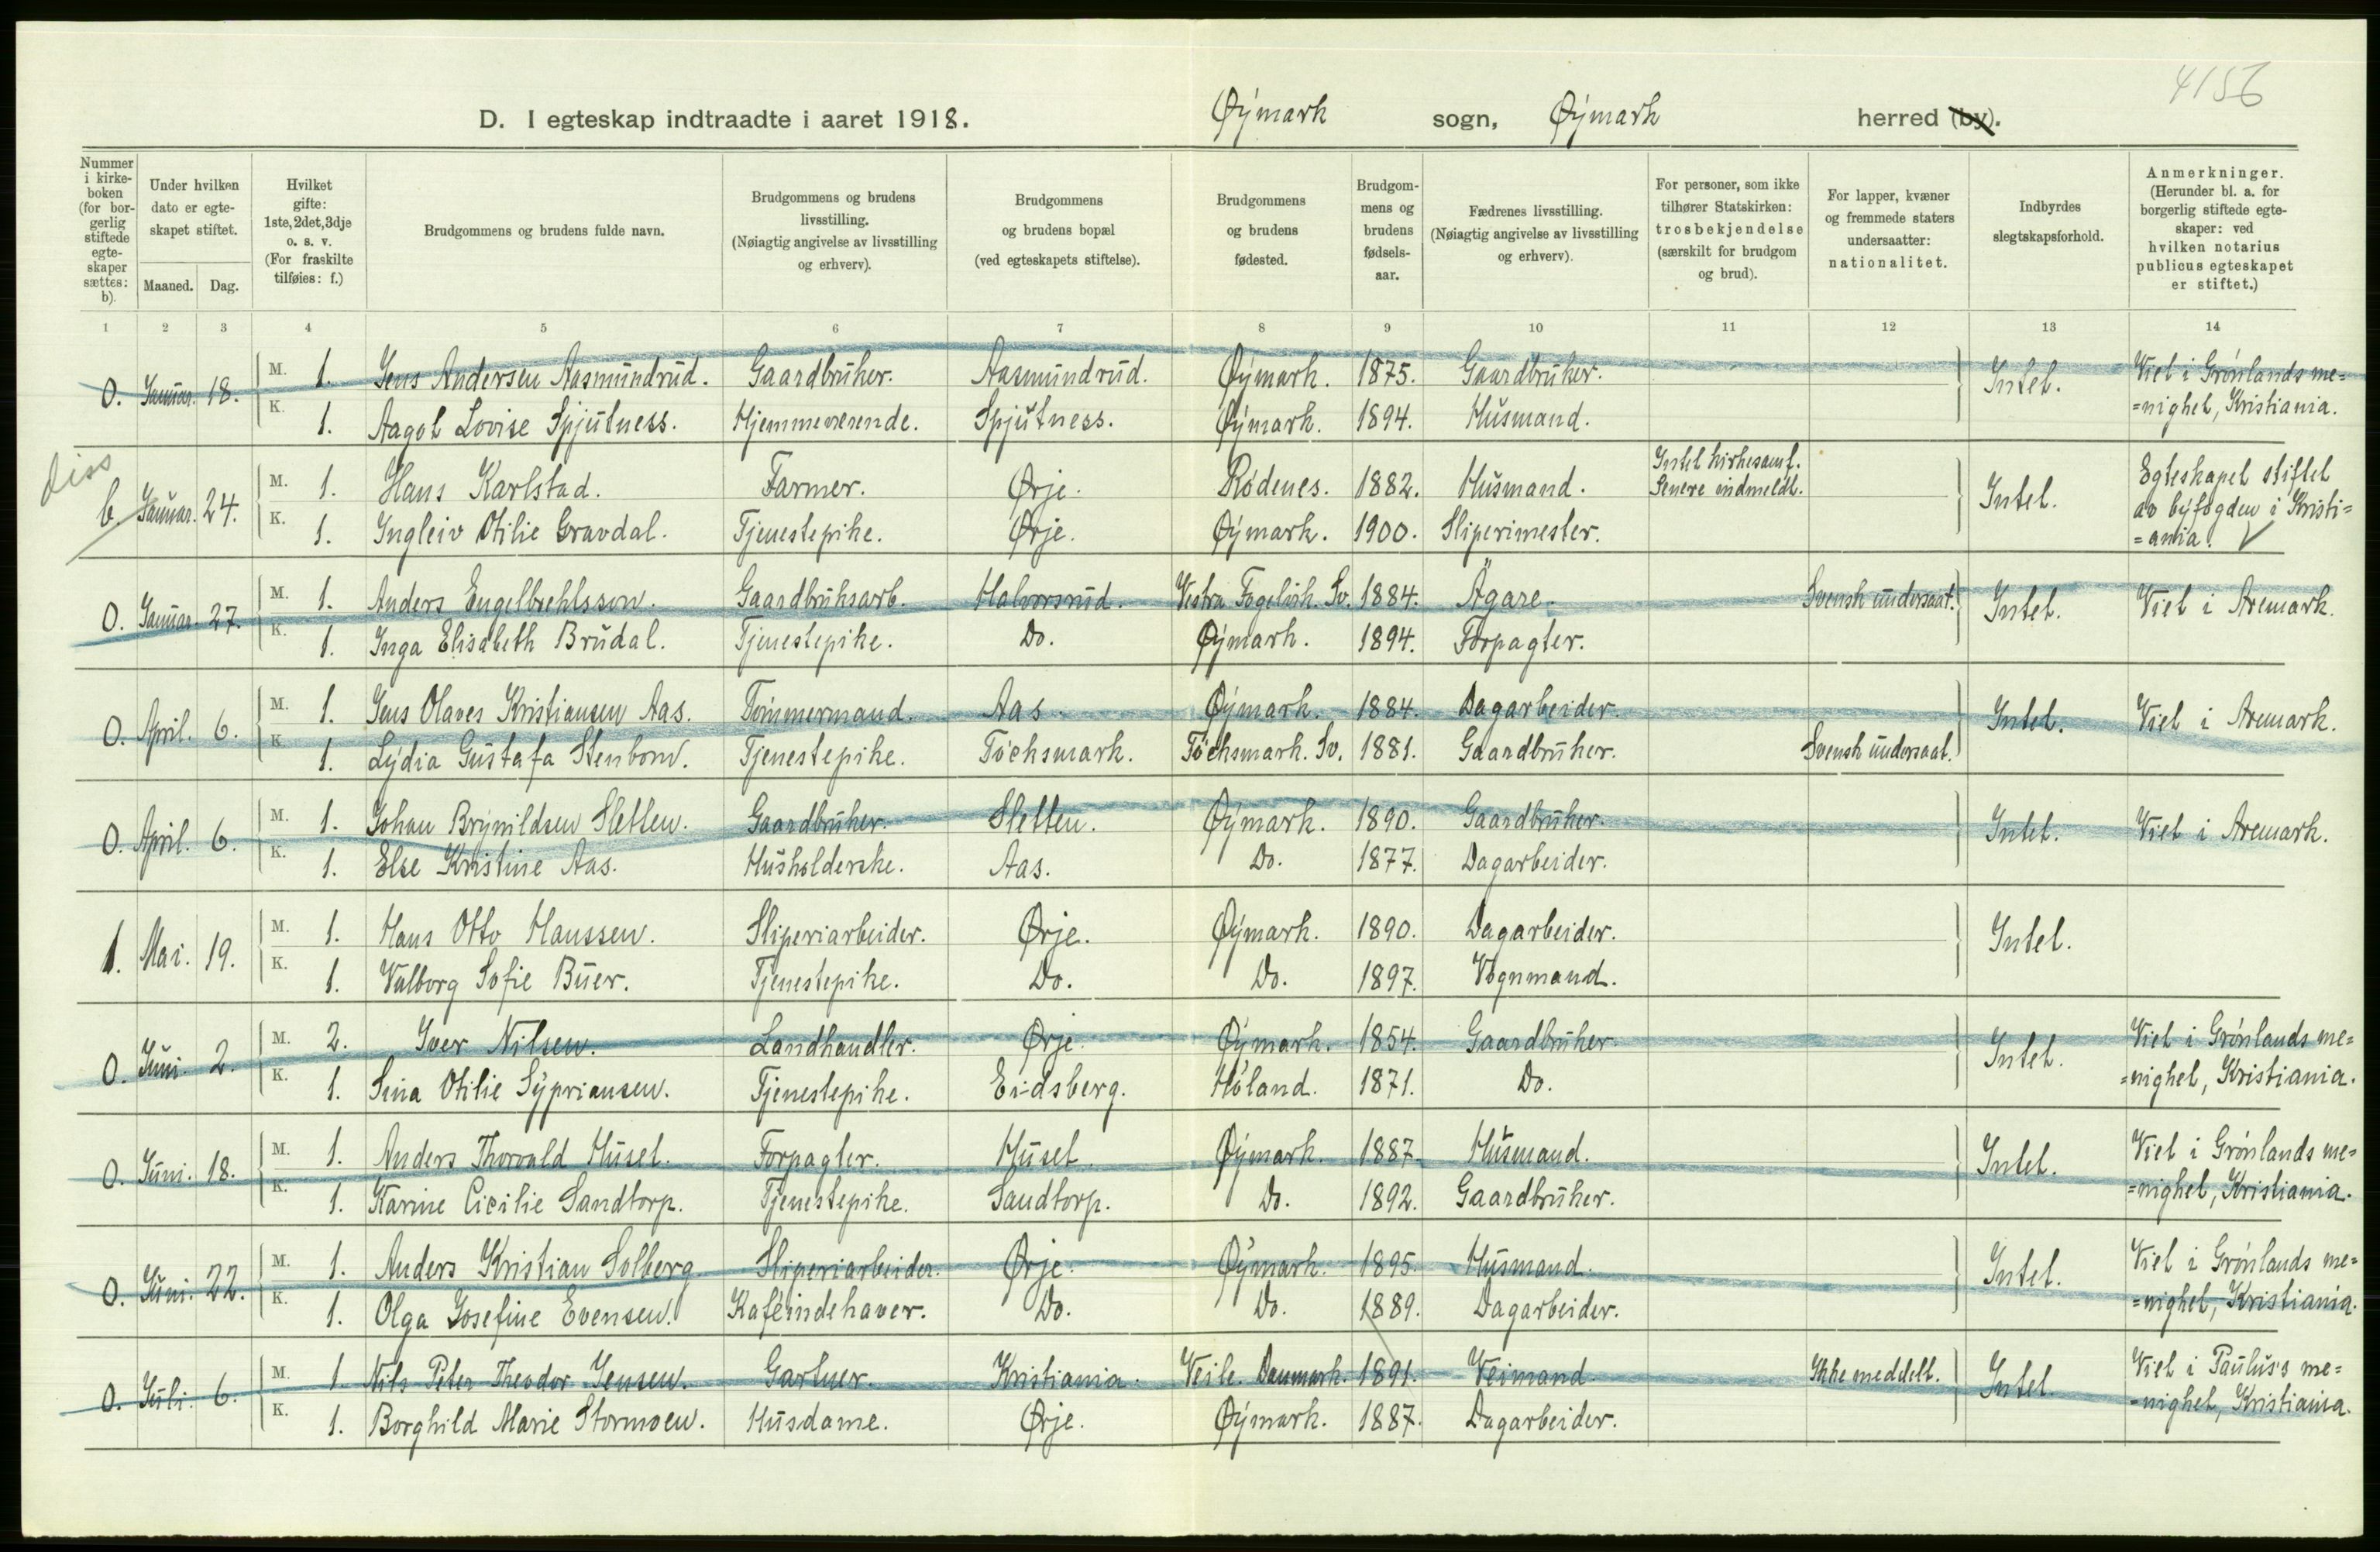 4156
D. I egteskap indtraadte i aaret 1918. Øymark sogn, Øymark herred (by).
Nummer i kirkeboken (for borgerlig stiftede egteskaper sættes: b).
Under hvilken dato er egteskapet stiftet.
Maaned. Dag.
Hvilket gifte: 1ste, 2det, 3dje o. s. v. (For fraskilte tilføies: f.)
Brudgommens og brudens fulde navn.
Brudgommens og brudens livsstilling. (Nøiagtig angivelse av livsstilling og erhverv).
Brudgommens og brudens bopæl (ved egteskapets stiftelse).
Brudgommens og brudens fødested.
Brudgommens og brudens fødselsaar.
Fædrenes livsstilling. (Nøiagtig angivelse av livsstilling og erhverv).
For personer, som ikke tilhører Statskirken: trosbekjendelse (særskilt for brudgom og brud).
For lapper, kvæner og fremmede staters undersaatter: nationalitet.
Indbyrdes slegtskapsforhold.
Anmerkninger. (Herunder bl. a. for borgerlig stiftede egteskaper: ved hvilken notarius publicus egteskapet er stiftet.)
1 2 3 4 5 6 7 8 9 10 11 12 13 14
0. Januar. 18. M. 1. Jens Andersen Aasmundrud. Gaardbruker. Aasmundrud. Øymark. 1875. Gaardbruker. Intet. Viet i Grønlands me=
K. 1. Aagot Lovise Spjutness. Hjemmeværende. Spjutness. Øymark. 1894. Husmand. =nighet, Kristiania.
diss
b. Januar. 24. M. 1. Hans Karlstad. Farmer. Ørje. Rødenes. 1882. Husmand. Intet kirkesamf. Senere indmeldt. Intet. Egteskapet stiftet
K. 1. Ingleiv Otilie Gravdal. Tjenestepike. Ørje. Øymark. 1900. Sliperimester. av byfogden i Kristi=
=ania. ✓
0. Januar. 27. M. 1. Anders Engelbrehtsson. Gaardbruksarb. Halvorsrud. Vestra Fogelvik. Sv. 1884. Ägare. Svensk undersaat. Intet. Viet i Aremark.
K. 1. Inga Elisabeth Brudal. Tjenestepike. Do. Øymark. 1894. Forpagter.
0. April. 6. M. 1. Jens Olaves Kristiansen Aas. Tømmermand. Aas. Øymark. 1884. Dagarbeider. Intet. Viet i Aremark.
K. 1. Lydia Gustafa Stenbom. Tjenestepike. Töcksmark. Töcksmark. Sv. 1881. Gaardbruker. Svensk undersaat.
0. April. 6. M. 1. Johan Brynildsen Sletten. Gaardbruker. Sletten. Øymark. 1890. Gaardbruker. Intet. Viet i Aremark.
K. 1. Else Kristine Aas. Husholderske. Aas. Do. 1877. Dagarbeider.
1. Mai. 19. M. 1. Hans Otto Hanssen. Sliperiarbeider. Ørje. Øymark. 1890. Dagarbeider. Intet.
K. 1. Valborg Sofie Buer. Tjenestepike. Do. Do. 1897. Vognmand.
0. Juni. 2. M. 2. Iver Nilsen. Landhandler. Ørje. Øymark. 1854. Gaardbruker. Intet. Viet i Grønlands me=
K. 1. Sina Otilie Sypriansen. Tjenestepike. Eidsberg. Høland. 1871. Do. =nighet, Kristiania.
0. Juni. 18. M. 1. Anders Thorvald Huset. Forpagter. Huset. Øymark. 1887. Husmand. Intet. Viet i Grønlands me=
K. 1. Karine Cicilie Sandtorp. Tjenestepike. Sandtorp. Do. 1892. Gaardbruker. =nighet, Kristiania.
0. Juni. 22. M. 1. Anders Kristian Solberg. Sliperiarbeider. Ørje. Øymark. 1895. Husmand. Intet. Viet i Grønlands me=
K. 1. Olga Josefine Evensen. Kaféindehaver. Do. Do. 1889. Dagarbeider. =nighet, Kristiania.
0. Juli. 6. M. 1. Nils Peter Theodor Jensen. Gartner. Kristiania. Veile. Danmark. 1891. Veimand. Ikke meddelt. Intet. Viet i Paulus's me=
K. 1. Borghild Marie Stormoen. Husdame. Ørje. Øymark. 1887. Dagarbeider. =nighet, Kristiania.